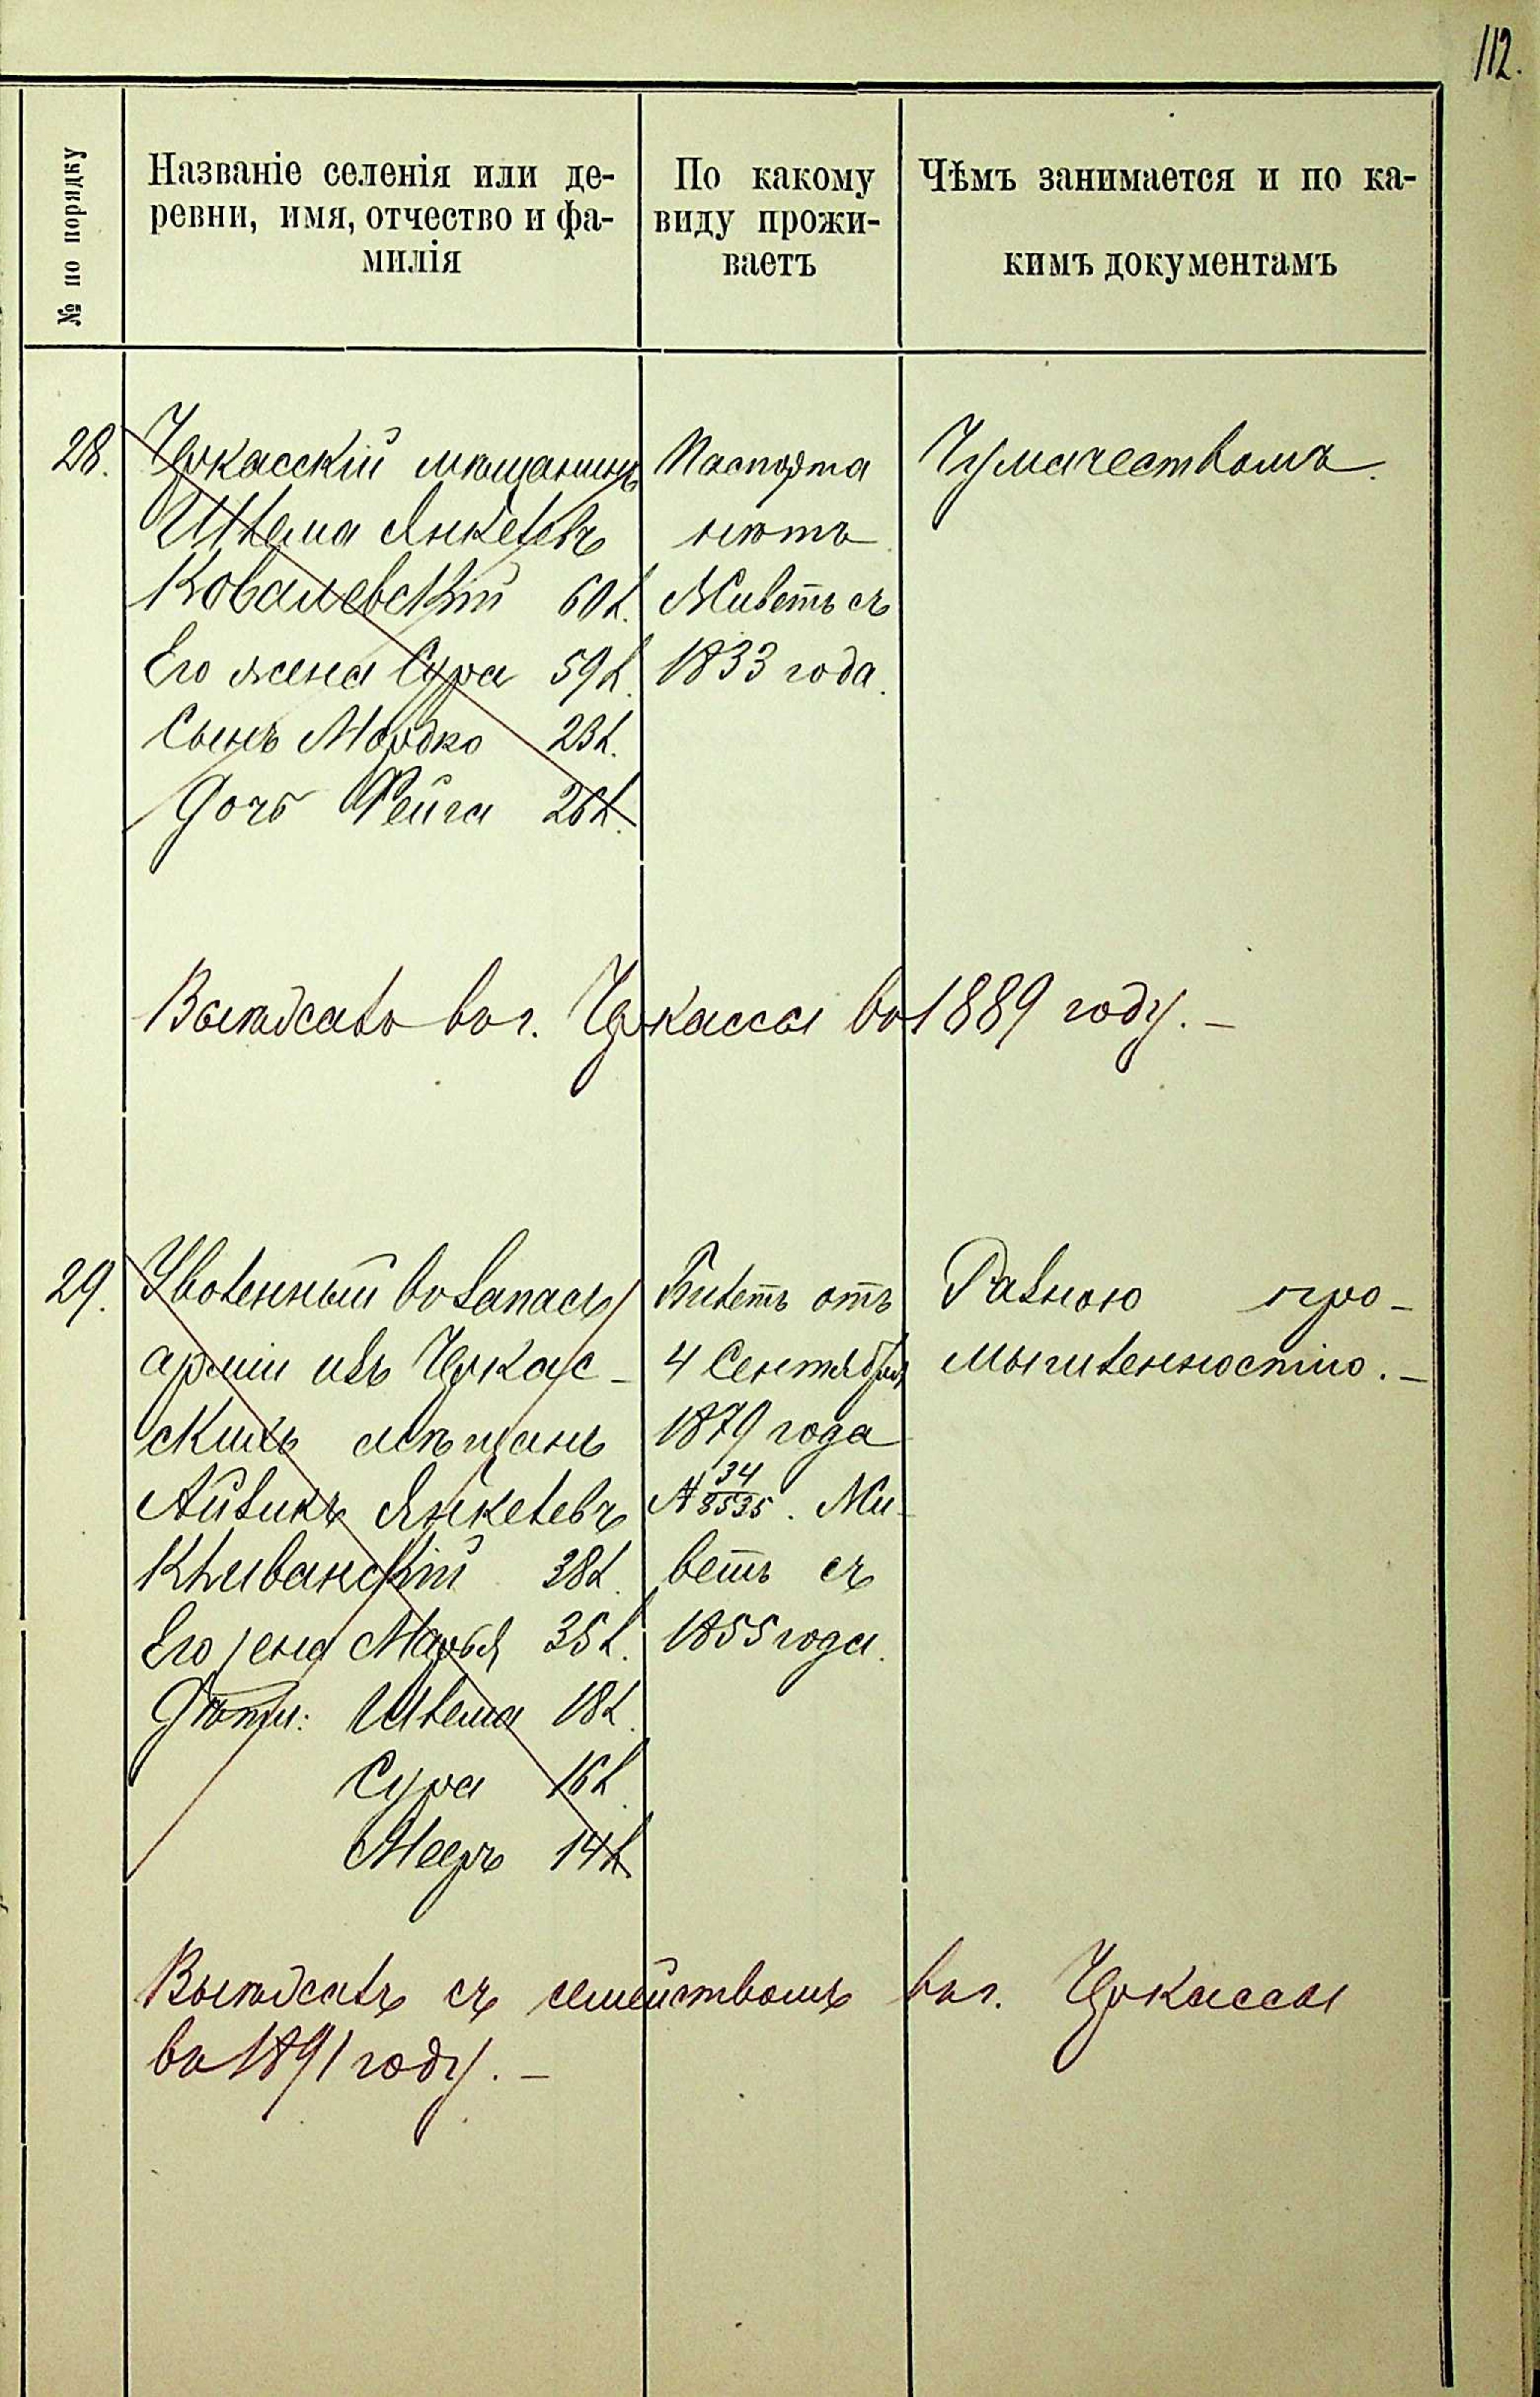 112.
№ по порядку
Названіе селенія или де-
ревни, имя, отчество и фа-
милія
По какому
виду прожи-
ваетъ
Чѣмъ занимается и по ка-
кимъ документамъ
28.
Черкасскій мѣщанинъ
Шлема Янкелевъ
Ковалевскій 60 л.
Его жена Сура 59 л.
Сынъ Мордко 23 л.
Дочь Фейга 26 л.
Паспорта
нѣтъ
Живетъ съ
1833 года.
Чумачествомъ.
Выѣхалъ въ г. Черкассы въ 1889 году. —
29.
Уволенный въ запасъ
арміи изъ Черкас-
скихъ мѣщанъ
Айзикъ Янкелевъ
Кливанскій 38 л.
Его жена Марья 35 л.
Дѣти: Шлема 18 л.
Сура 16 л.
Мееръ 14 л.
Билетъ отъ
4 Сентября
1879 года
№ 34/8535. Жи-
ветъ съ
1855 года.
Разною про-
мышленностію. —
Выѣхалъ съ семействомъ въ г. Черкассы
въ 1891 году. —